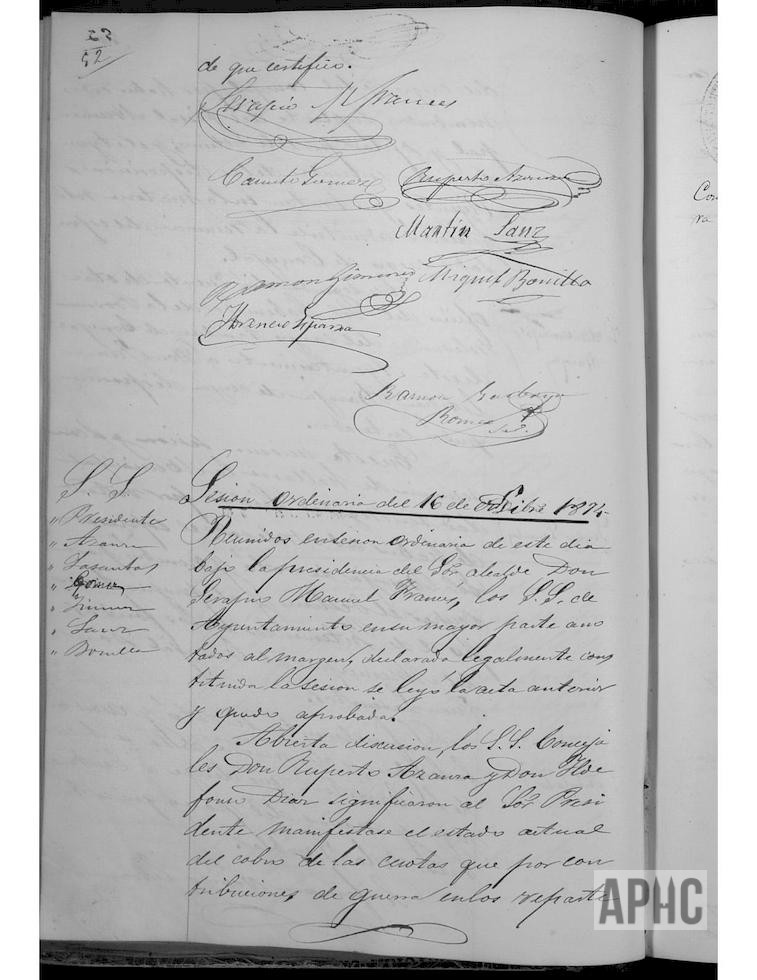 52
de que certifico.
Serapio M Frances
Canuto Gomez
Ruperto Azaura
Martin Sanz
Ramon Gimeno
Miguel Bonilla
Ramon
Romeo
S. S.
" Presidente
" Azaura
" Lasantas
" Gomez
" Gimeno
" Sanz
" Bonilla
Sesion ordinaria del 16 de Octbre 1874.
Reunidos en sesion ordinaria de este dia
bajo la presidencia del Sor. alcalde Don
Serapio Manuel Frances, los S.S. de
Ayuntamiento en su mayor parte ano
tados al margen, declarada legalmente cons
tituida la sesion se leyó la acta anterior
y quedo aprobada.
Abierta discusion, los S.S. Conceja
les Don Ruperto Azaura y Don Ilde
fonso Diaz significaron al Sor. Presi
dente manifestase el estado actual
del cobro de las cuotas que por con
tribuciones de guerra en los reparte
Co
ra
APHC